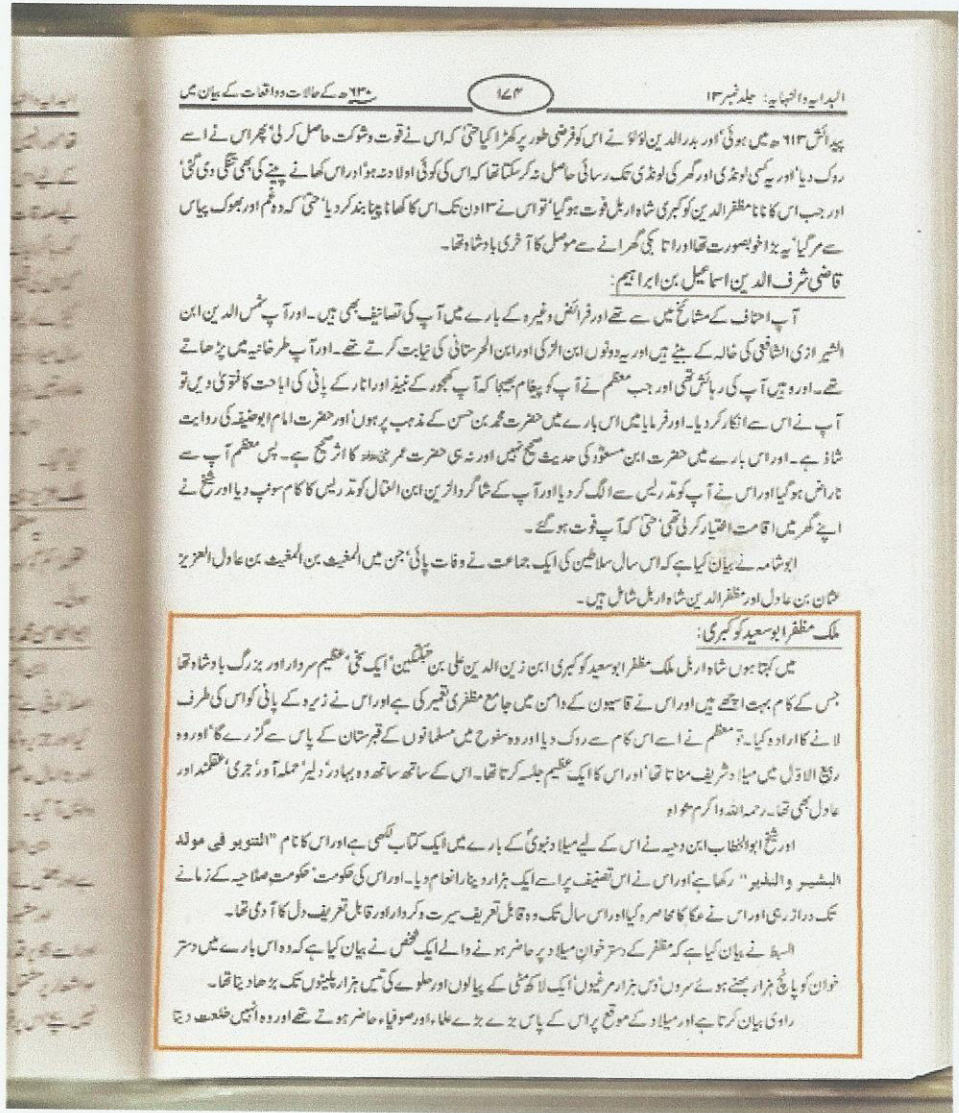 البدایہ والنہایہ: جلد نمبر ۱۳
۱۷۴
۶۳۰ھ کے حالات و واقعات کے بیان میں
پیدائش ۶۱۳ھ میں ہوئی' اور بدر الدین لؤلؤ نے اس کو فرضی طور پر کھڑا کیا حتیٰ کہ اس نے قوت و شوکت حاصل کر لی' پھر اس نے اسے
روک دیا' اور یہ کسی لونڈی اور گھر کی لونڈی تک رسائی حاصل نہ کر سکتا تھا کہ اس کی کوئی اولاد نہ ہو' اور اس کھانے پینے کی بھی تنگی دی گئی'
اور جب اس کا نانا مظفر الدین کوکبری شاہ اربل فوت ہو گیا' تو اس نے ۱۳ دن تک اس کا کھانا پینا بند کر دیا' حتیٰ کہ وہ غم اور بھوک پیاس
سے مر گیا' یہ بڑا خوبصورت تھا اور اتا بکی گھرانے سے موصل کا آخری بادشاہ تھا۔
قاضی شرف الدین اسماعیل بن ابراہیم:
آپ احناف کے مشائخ میں سے تھے اور فرائض وغیرہ کے بارے میں آپ کی تصانیف بھی ہیں۔ اور آپ شمس الدین ابن
الشیرازی الشافعی کی خالہ کے بیٹے ہیں اور یہ دونوں ابن الزکی اور ابن الحرستانی کی نیابت کرتے تھے۔ اور آپ طرخانیہ میں پڑھاتے
تھے۔ اور وہیں آپ کی رہائش تھی اور جب معظم نے آپ کو پیغام بھیجا کہ آپ کھجور کے نبیذ اور انار کے پانی کی اباحت کا فتویٰ دیں تو
آپ نے اس سے انکار کر دیا۔ اور فرمایا میں اس بارے میں حضرت محمد بن حسن کے مذہب پر ہوں' اور حضرت امام ابو حنیفہ کی روایت
شاذ ہے۔ اور اس بارے میں حضرت ابن مسعودؓ کی حدیث صحیح نہیں اور نہ ہی حضرت عمر کا اثر صحیح ہے۔ پس معظم آپ سے
ناراض ہو گیا اور اس نے آپ کو تدریس سے الگ کر دیا اور آپ کے شاگرد الزین ابن العتال کو تدریس کا کام سونپ دیا اور شیخ نے
اپنے گھر میں اقامت اختیار کر لی تھی' حتیٰ کہ آپ فوت ہو گئے۔
ابو شامہ نے بیان کیا ہے کہ اس سال سلاطین کی ایک جماعت نے وفات پائی' جن میں المغیث بن المغیث بن عادل العزیز
عثمان بن عادل اور مظفر الدین شاہ اربل شامل ہیں۔
ملک مظفر ابو سعید کوکبری:
میں کہتا ہوں شاہ اربل ملک مظفر ابو سعید کوکبری ابن زین الدین علی بن تبکتکین' ایک سخی' عظیم سردار اور بزرگ بادشاہ تھا
جس کے کام بہت اچھے ہیں اور اس نے قاسیون کے دامن میں جامع مظفری تعمیر کی ہے اور اس نے زیرہ کے پانی کو اس کی طرف
لانے کا ارادہ کیا۔ تو معظم نے اسے اس کام سے روک دیا اور وہ سفوح میں مسلمانوں کے قبرستان کے پاس سے گزرے گا' اور وہ
ربیع الاوّل میں میلاد شریف مناتا تھا' اور اس کا ایک عظیم جلسہ کرتا تھا۔ اس کے ساتھ ساتھ وہ بہادر' دلیر' حملہ آور' جری' عقلمند اور
عادل بھی تھا۔ رحمہ اللہ واکرم مثواہ
اور شیخ ابوالخطاب ابن دحیہ نے اس کے لیے میلاد نبویؐ کے بارے میں ایک کتاب لکھی ہے اور اس کا نام "التنویر فی مولد
البشیر والنذیر" رکھا ہے' اور اس نے اس تصنیف پر اسے ایک ہزار دینار انعام دیا۔ اور اس کی حکومت' حکومت صلاحیہ کے زمانے
تک دراز رہی اور اس نے عکا کا محاصرہ کیا اور اس سال تک وہ قابل تعریف سیرت و کردار اور قابل تعریف دل کا آدمی تھا۔
السبط نے بیان کیا ہے کہ مظفر کے دسترخوان میلاد پر حاضر ہونے والے ایک شخص نے بیان کیا ہے کہ وہ اس بارے میں دستر
خوان کو پانچ ہزار بھنے ہوئے سروں' دس ہزار مرغیوں' ایک لاکھ مٹی کے پیالوں اور حلوے کی تیس ہزار پلیٹوں تک بڑھا دیتا تھا۔
راوی بیان کرتا ہے اور میلاد کے موقع پر اس کے پاس بڑے بڑے علماء اور صوفیاء حاضر ہوتے تھے اور وہ انہیں خلعت دیتا